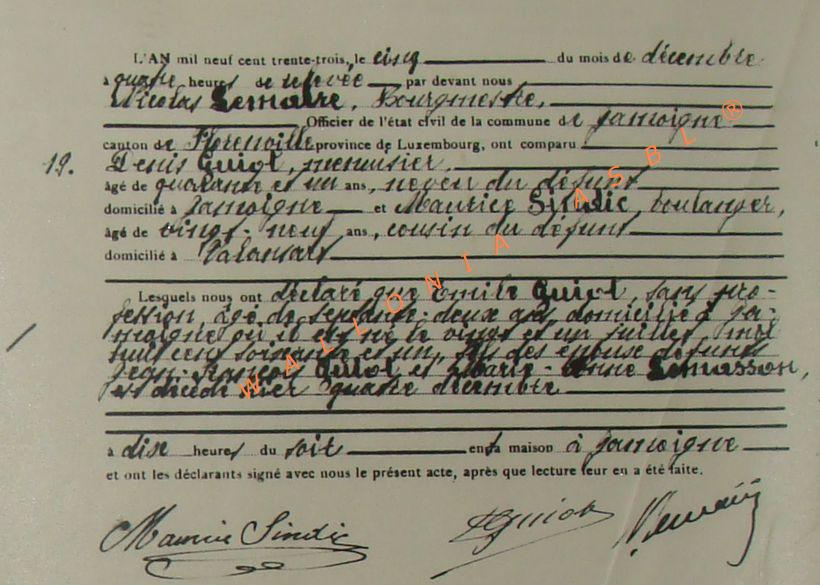 L'AN mil neuf cent trente-trois, le cinq du mois de décembre
à quatre heures de relevée par devant nous
Nicolas Lemaire, Bourgmestre,
Officier de l'état civil de la commune de Jamoigne
canton de Florenville province de Luxembourg, ont comparu
12. Denis Guiot, menuisier,
âgé de quarante et un ans, neveu du défunt
domicilié à Jamoigne et Maurice Sindic, boulanger,
âgé de vingt-neuf ans, cousin du défunt
domicilié à Valansart
Lesquels nous ont déclaré que Emile Guiot, sans pro-
fession âgé de septante-deux ans, domicilié à Ja-
moigne où il est né le vingt et un juillet mil
huit cent soixante et un, fils des époux défunts
Jean-François Guiot et Marie-Anne Lemasson,
est décédé hier quatre décembre
à dix heures du soir en sa maison à Jamoigne
et ont les déclarants signé avec nous le présent acte, après que lecture leur en a été faite.
Maurice Sindic DGuiot Lemaire
WALLONIA ASBL ®